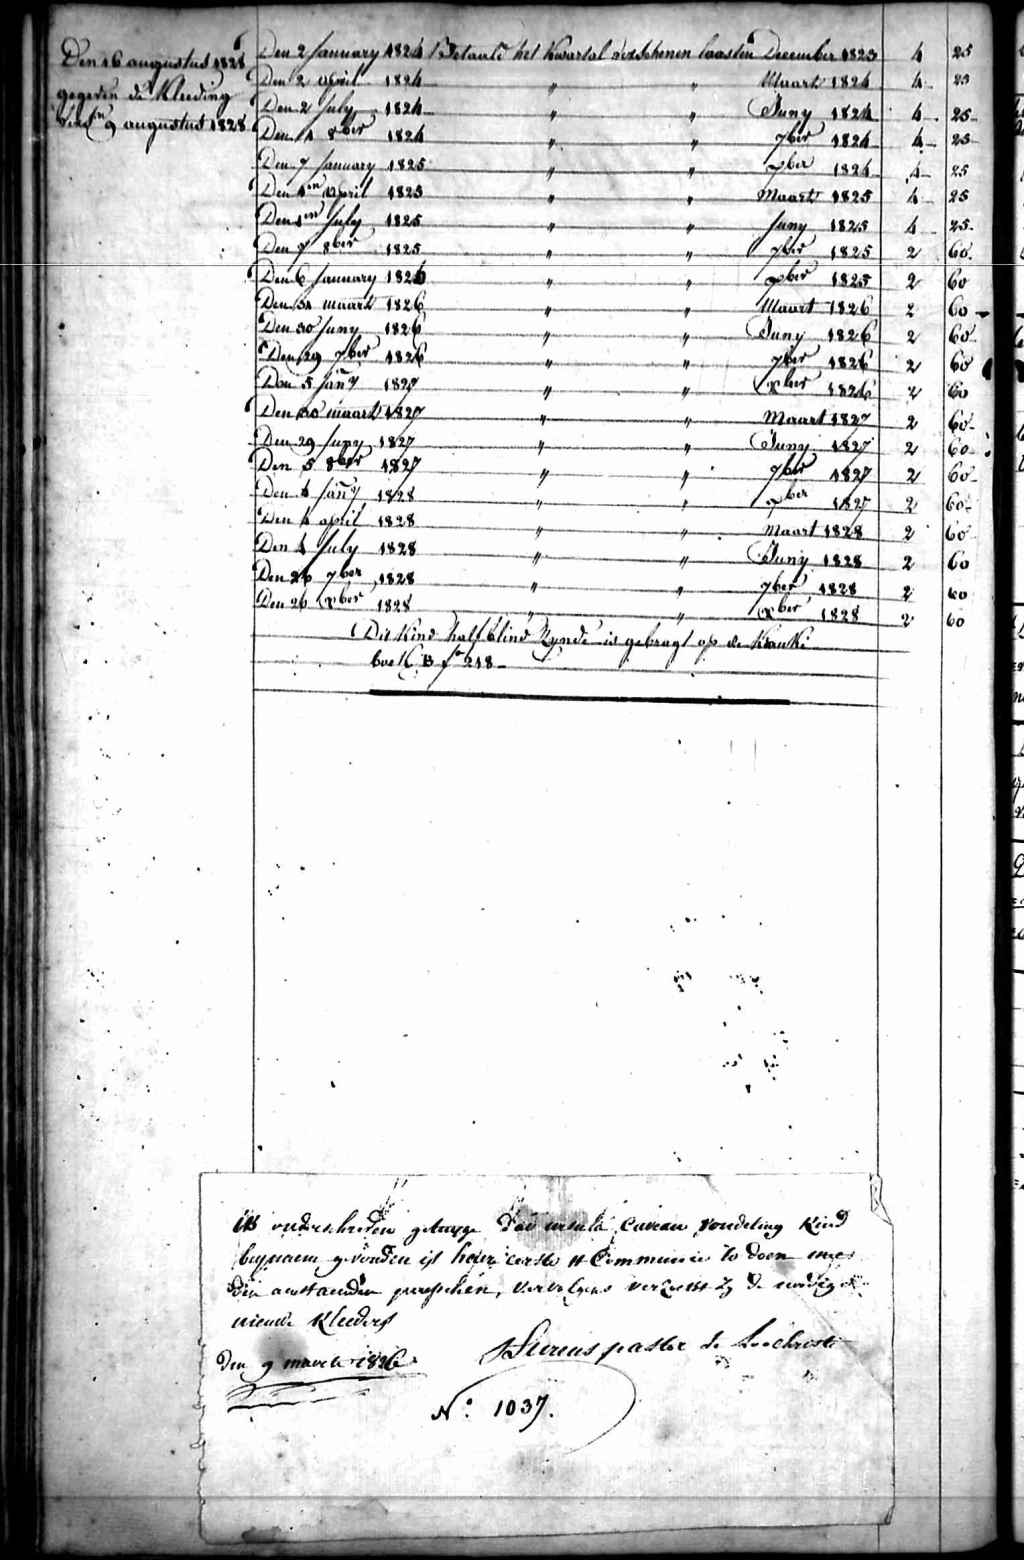 Den 16 augustus 1828
gegeven de Kleeding
augustus 1828
Den 2 January 1824 Betaald het Kwartal verschenen laasten December 1823 4 25
Den 2 april 1824 " " Maart 1824 4 25
Den 2 July 1824 " " Juny 1824 4 25
Den 1 8ber 1824 " " 7ber 1824 4 25
Den 7 January 1825 " " xber 1824 4 25
Den 1en april 1825 " " Maart 1825 4 25
Den 1en July 1825 " " Juny 1825 4 25
Den 7 8ber 1825 " " 7ber 1825 2 60
Den 6 January 1826 " " xber 1825 2 60
Den 31 maart 1826 " " Maart 1826 2 60
Den 30 Juny 1826 " " Juny 1826 2 60
Den 29 7ber 1826 " " 7ber 1826 2 60
Den 5 Jany 1827 " " xber 1826 2 60
Den 30 maart 1827 " " Maart 1827 2 60
Den 29 Juny 1827 " " Juny 1827 2 60
Den 5 8ber 1827 " " 7ber 1827 2 60
Den 4 Jany 1828 " " xber 1827 2 60
Den 4 april 1828 " " Maart 1828 2 60
Den 4 July 1828 " " Juny 1828 2 60
Den 26 7ber 1828 " " 7ber 1828 2 60
Den 26 xber 1828 " " xber 1828 2 60
Dit Kind half blind Zynde is gebragt op de Kranke
boek B fo 218
ik ondeschreven getuyge dat ursula Caveau vondeling Kind
bequaem gevonden is haer eerste H Communie te doen met
den aenstaenden paesschen, vervolgens verzoekt zy de nodige
nieuwe Kleeders
den 9 maerte 1826 pastor de Loochristi
N° 1037.